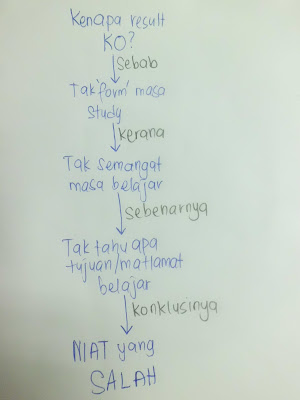 Kenapa result
KO?
Sebab
Tak 'form' masa
study
kerana
Tak semangat
masa belajar
sebenarnya
Tak tahu apa
tujuan/matlamat
belajar
konklusinya
NIAT yang
SALAH